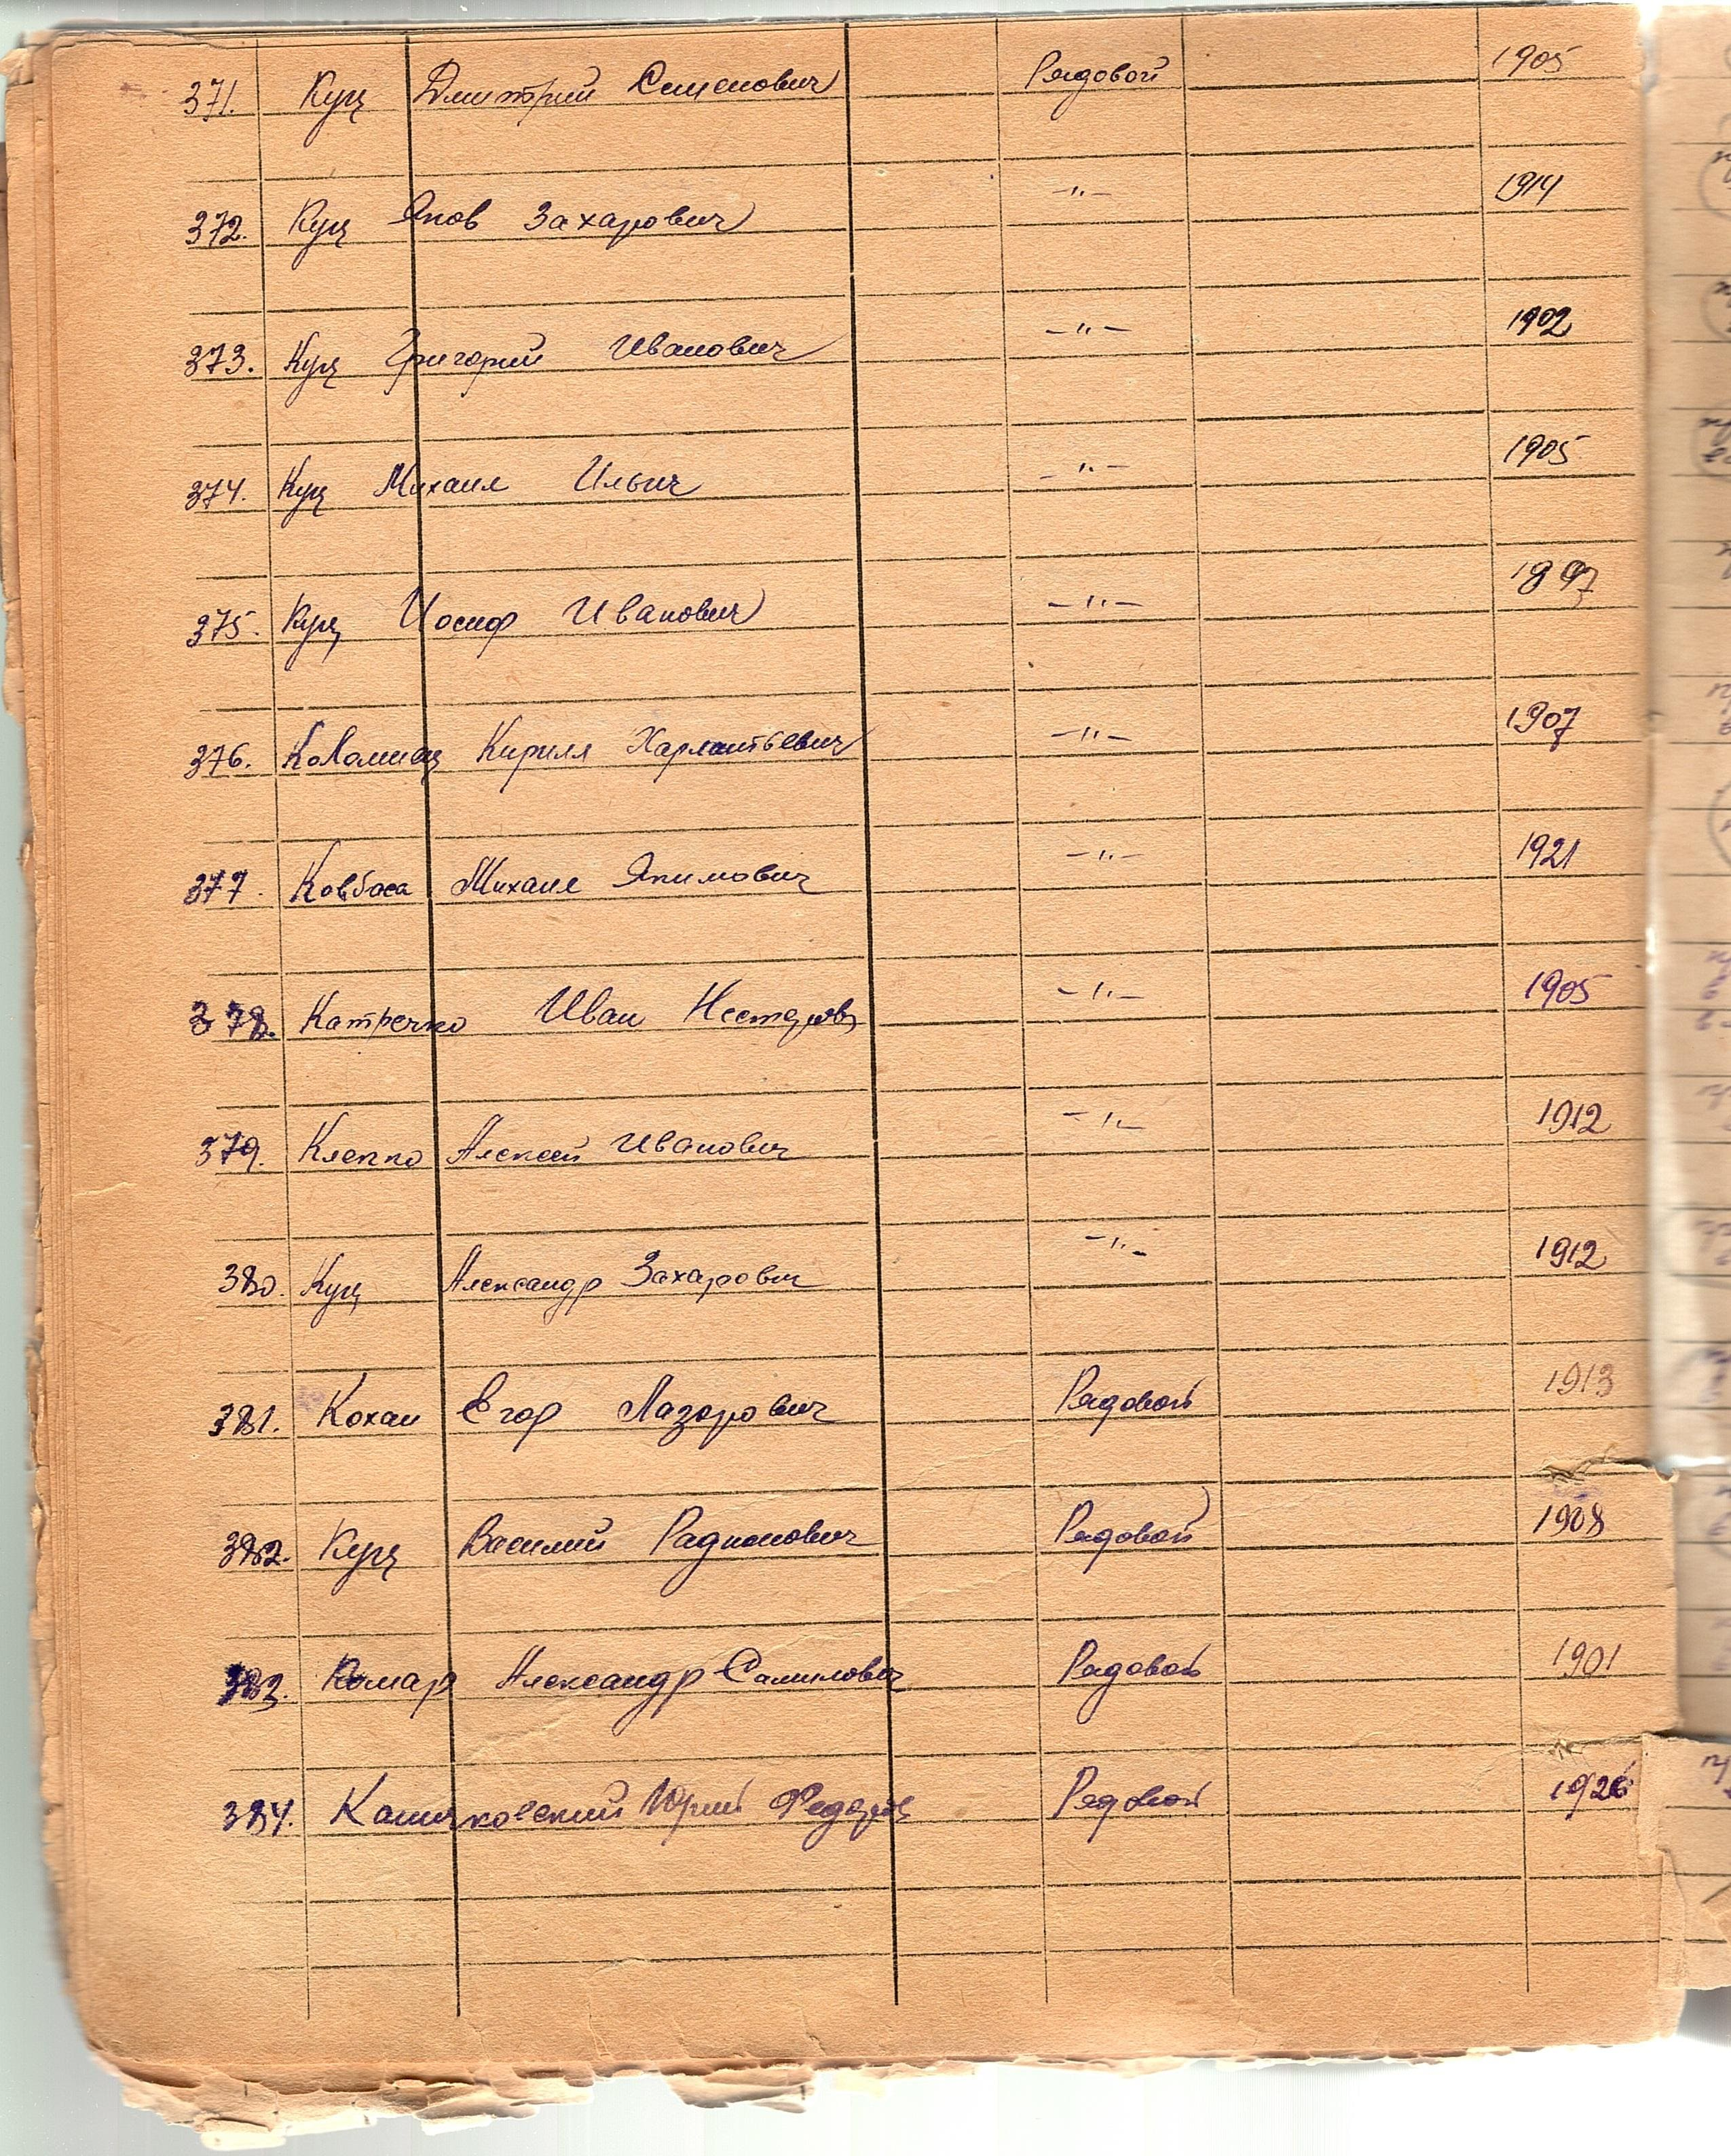 371. Куц Дмитрий Семенович Рядовой 1905
372. Куц Яков Захарович -"- 1914
373. Куц Григорий Иванович -"- 1902
374. Куц Михаил Ильич -"- 1905
375. Куц Иосиф Иванович -"- 1897
376. Коломиец Кирилл Харлантьевич -"- 1907
377. Ковбаса Михаил Якимович -"- 1921
378. Катречко Иван Нестеров -"- 1905
379. Клепко Алексей Иванович -"- 1912
380. Куц Александр Захарович -"- 1912
381. Кохан Егор Лазарович Рядовой 1913
382. Куц Василий Радионович Рядовой 1908
383. Комар Александр Самилович Рядовой 1901
384. Юрий Федоров Рядовой 1926